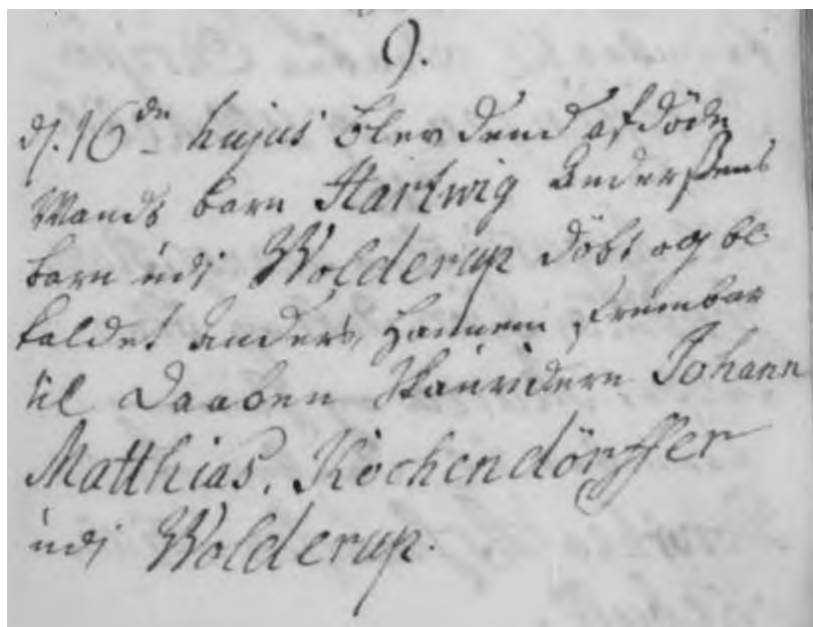 9.
d. 16de hujus blev dend afdöde
Mands barn Hartwig Anderßens
barn udi Wolderup döbt og be
kaldet Anders, Hannem frembar
til Daaben Skauridern Johann
Matthias. Kochendörffer
udi Wolderup.